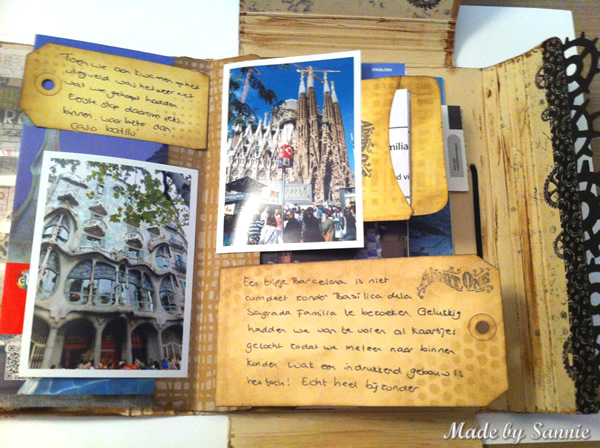 Toen we aan kwamen op het
vliegveld was het weer niet
wat we gehoopt hadden
Eerste stop daarom iets
binnen, wat beter dan
Casa batlló
ENGLISH
milia
d vi
Een tripje Barcelona is niet
compleet zonder Basilica de la
Sagrada Familia te bezoeken Gelukkig
hadden we van te voren al kaartjes
gekocht zodat we meteen naar binnen
konden. Wat een indrukkend gebouw is
het toch! Echt heel bijzonder
Made by Sannie